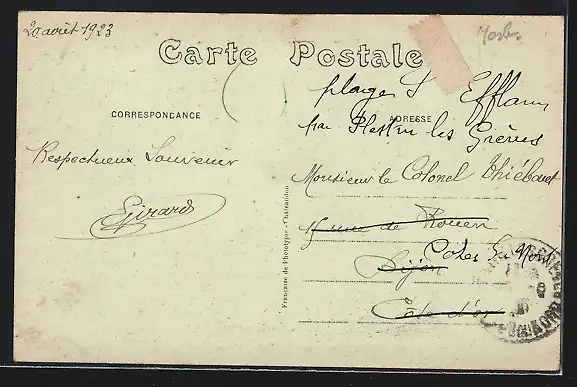 20 août 1923
Carte Postale
plage St Efflam
CORRESPONDANCE
ADRESSE
par Plestin les Grèves
Respectueux Souvenir
Monsieur le Colonel Thiébaut
Girard
rue de Rouen
Côtes du Nord
Dijon
Côte d'or
Française de Phototypie - Châteaudun